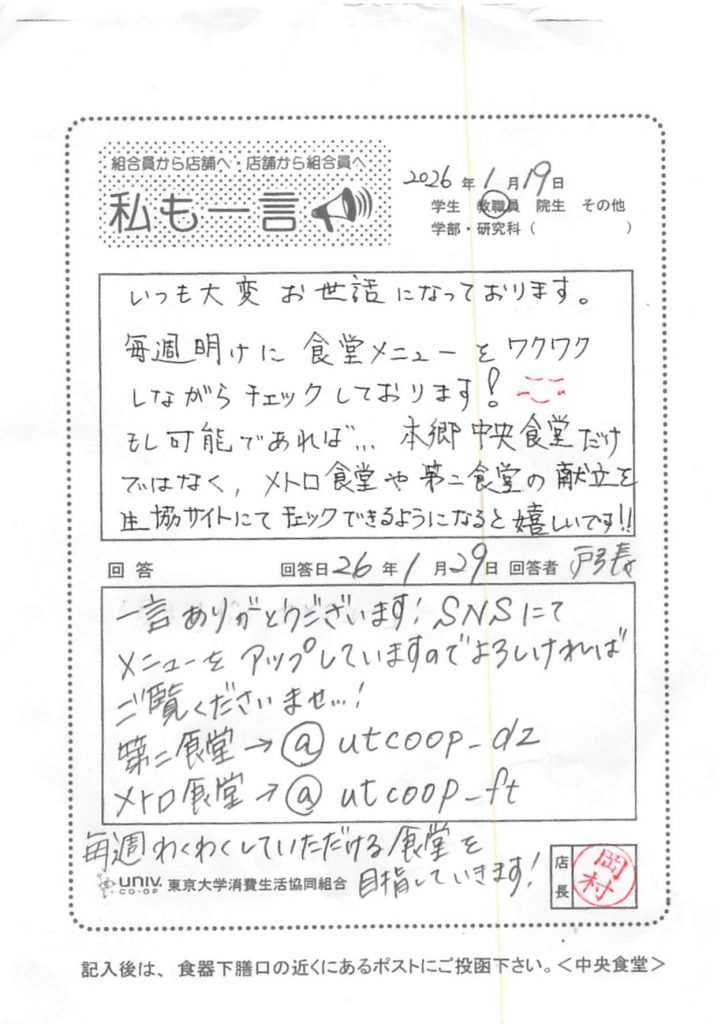 組合員から店舗へ・店舗から組合員へ
私も一言
2026年1月19日
学生 教職員 院生 その他
学部・研究科（ ）
いつも大変お世話になっております。
毎週明けに食堂メニューをワクワク
しながらチェックしております!
もし可能であれば... 本郷中央食堂だけ
ではなく、メトロ食堂や第二食堂の献立を
生協サイトにてチェックできるようになると嬉しいです!!
回答 回答日26年1月29日 回答者
一言ありがとうございます! SNSにて
メニューをアップしていますのでよろしければ
ご覧くださいませ...!
第二食堂→@utcoop_d2
メトロ食堂→@utcoop_ft
毎週わくわくしていただける食堂を
目指していきます!
UNIV. CO-OP 東京大学消費生活協同組合
店長 岡村
記入後は、食器下膳口の近くにあるポストにご投函下さい。＜中央食堂＞